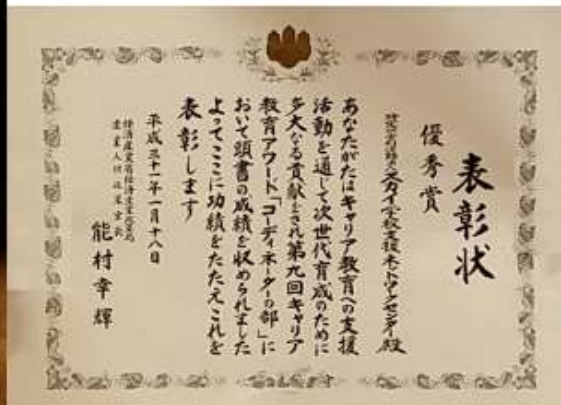 表彰状
優秀賞
特定非営利活動法人スクール・アドバイス・ネットワーク殿
あなたがたはキャリア教育への支援
活動を通して次世代育成のために
多大なる貢献をされ第九回キャリア
教育アワード「コーディネーターの部」に
おいて頭書の成績を収められました
よってここに功績をたたえこれを
表彰します
平成三十一年一月十八日
経済産業省経済産業政策局
産業人材政策室長
能村幸輝